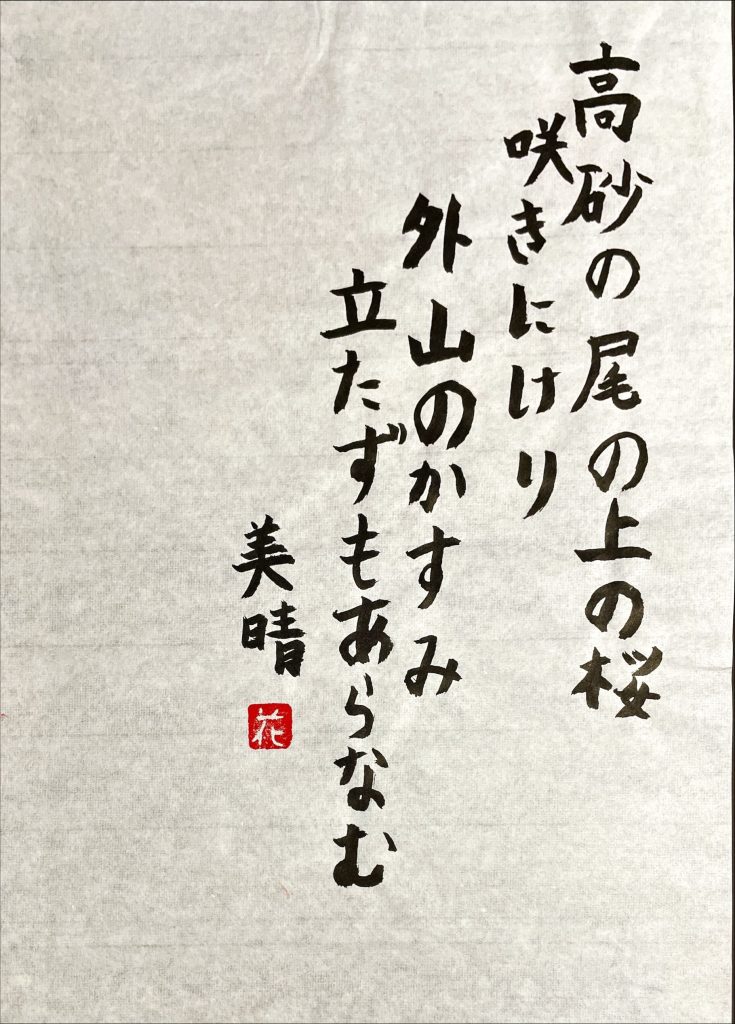 高砂の尾の上の桜
咲きにけり
外山のかすみ
立たずもあらなむ
美晴
花